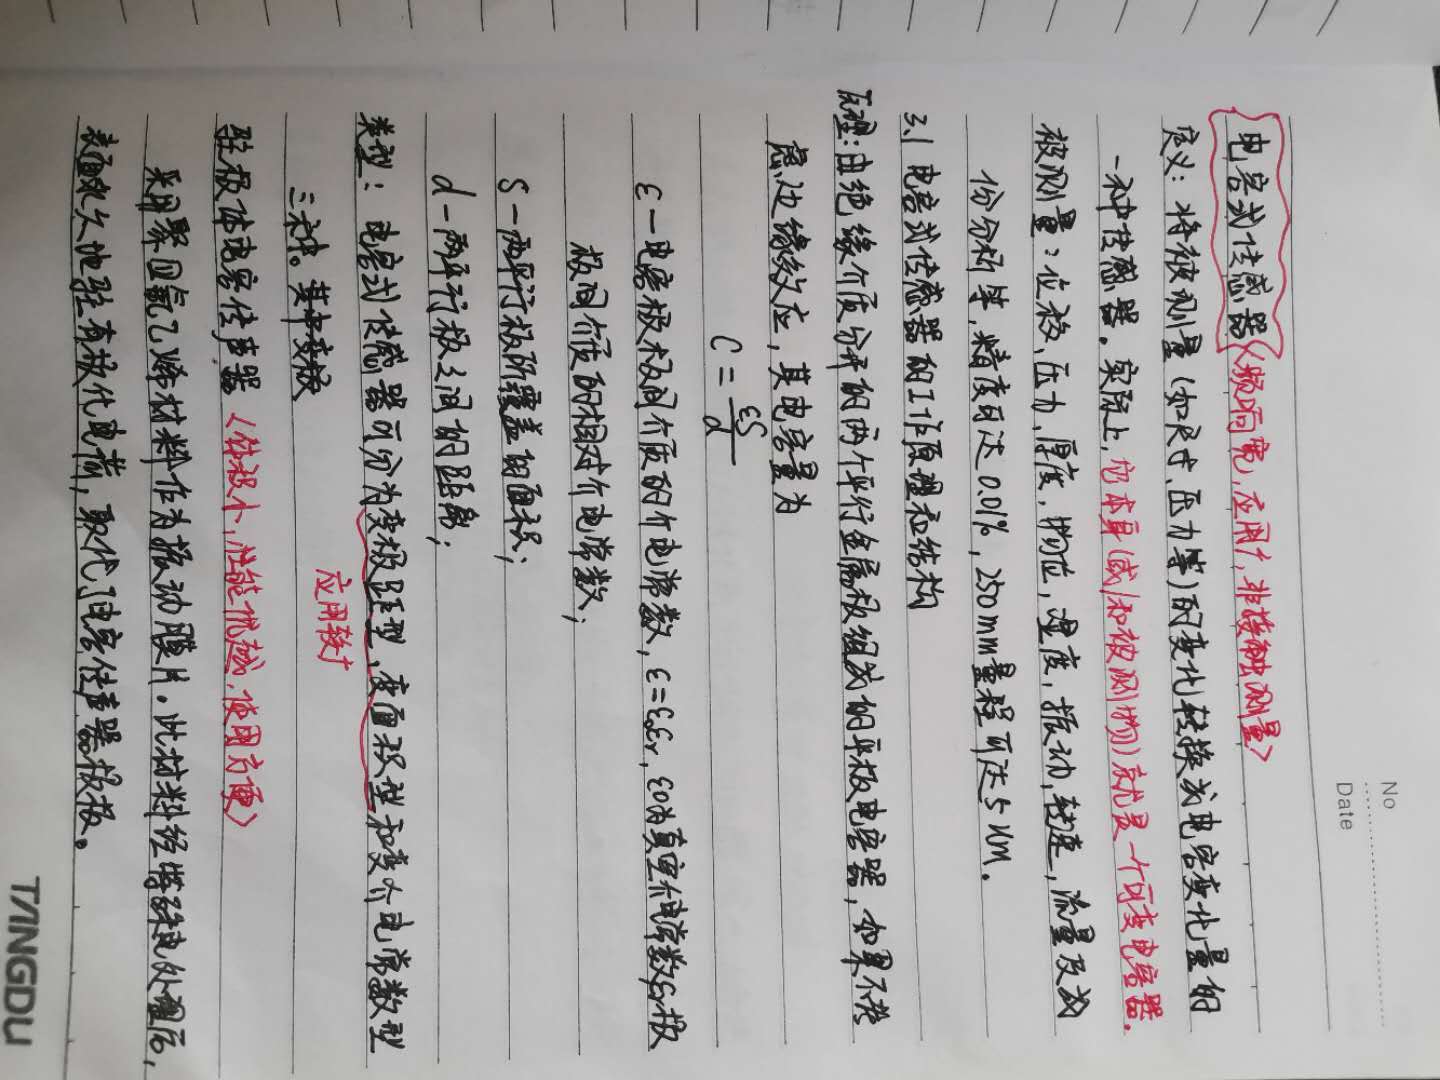 No
Date
电容式传感器〈频响宽,应用广,非接触测量〉
定义:将被测量(如尺寸、压力等)的变化转换成电容变化量的
一种传感器。实际上,它本身(或和被测物)就是一个可变电容器。
被测量:位移、压力、厚度,物位,湿度,振动,转速,流量及成
份分析等,精度可达0.01%,250mm量程可达5μm。
3.1 电容式传感器的工作原理和结构
原理:由绝缘介质分开的两个平行金属极组成的平板电容器,如果不考
虑边缘效应,其电容量为
C=εS/d
ε—电容极板间介质的介电常数,ε=ε₀εr,ε0为真空介电常数,εr极
板间介质的相对介电常数;
S—两平行板所覆盖的面积;
d—两平行板之间的距离;
类型:电容式传感器可分为变极距型、变面积型和变介电常数型
三种。其中变极
应用较广
驻极体电容传声器〈体积小,性能优越,使用方便〉
采用聚四氟乙烯材料作为振动膜片。此材料经特殊电处理后,
表面永久地驻有极化电荷,取代了电容传声器极板。
TANGDU